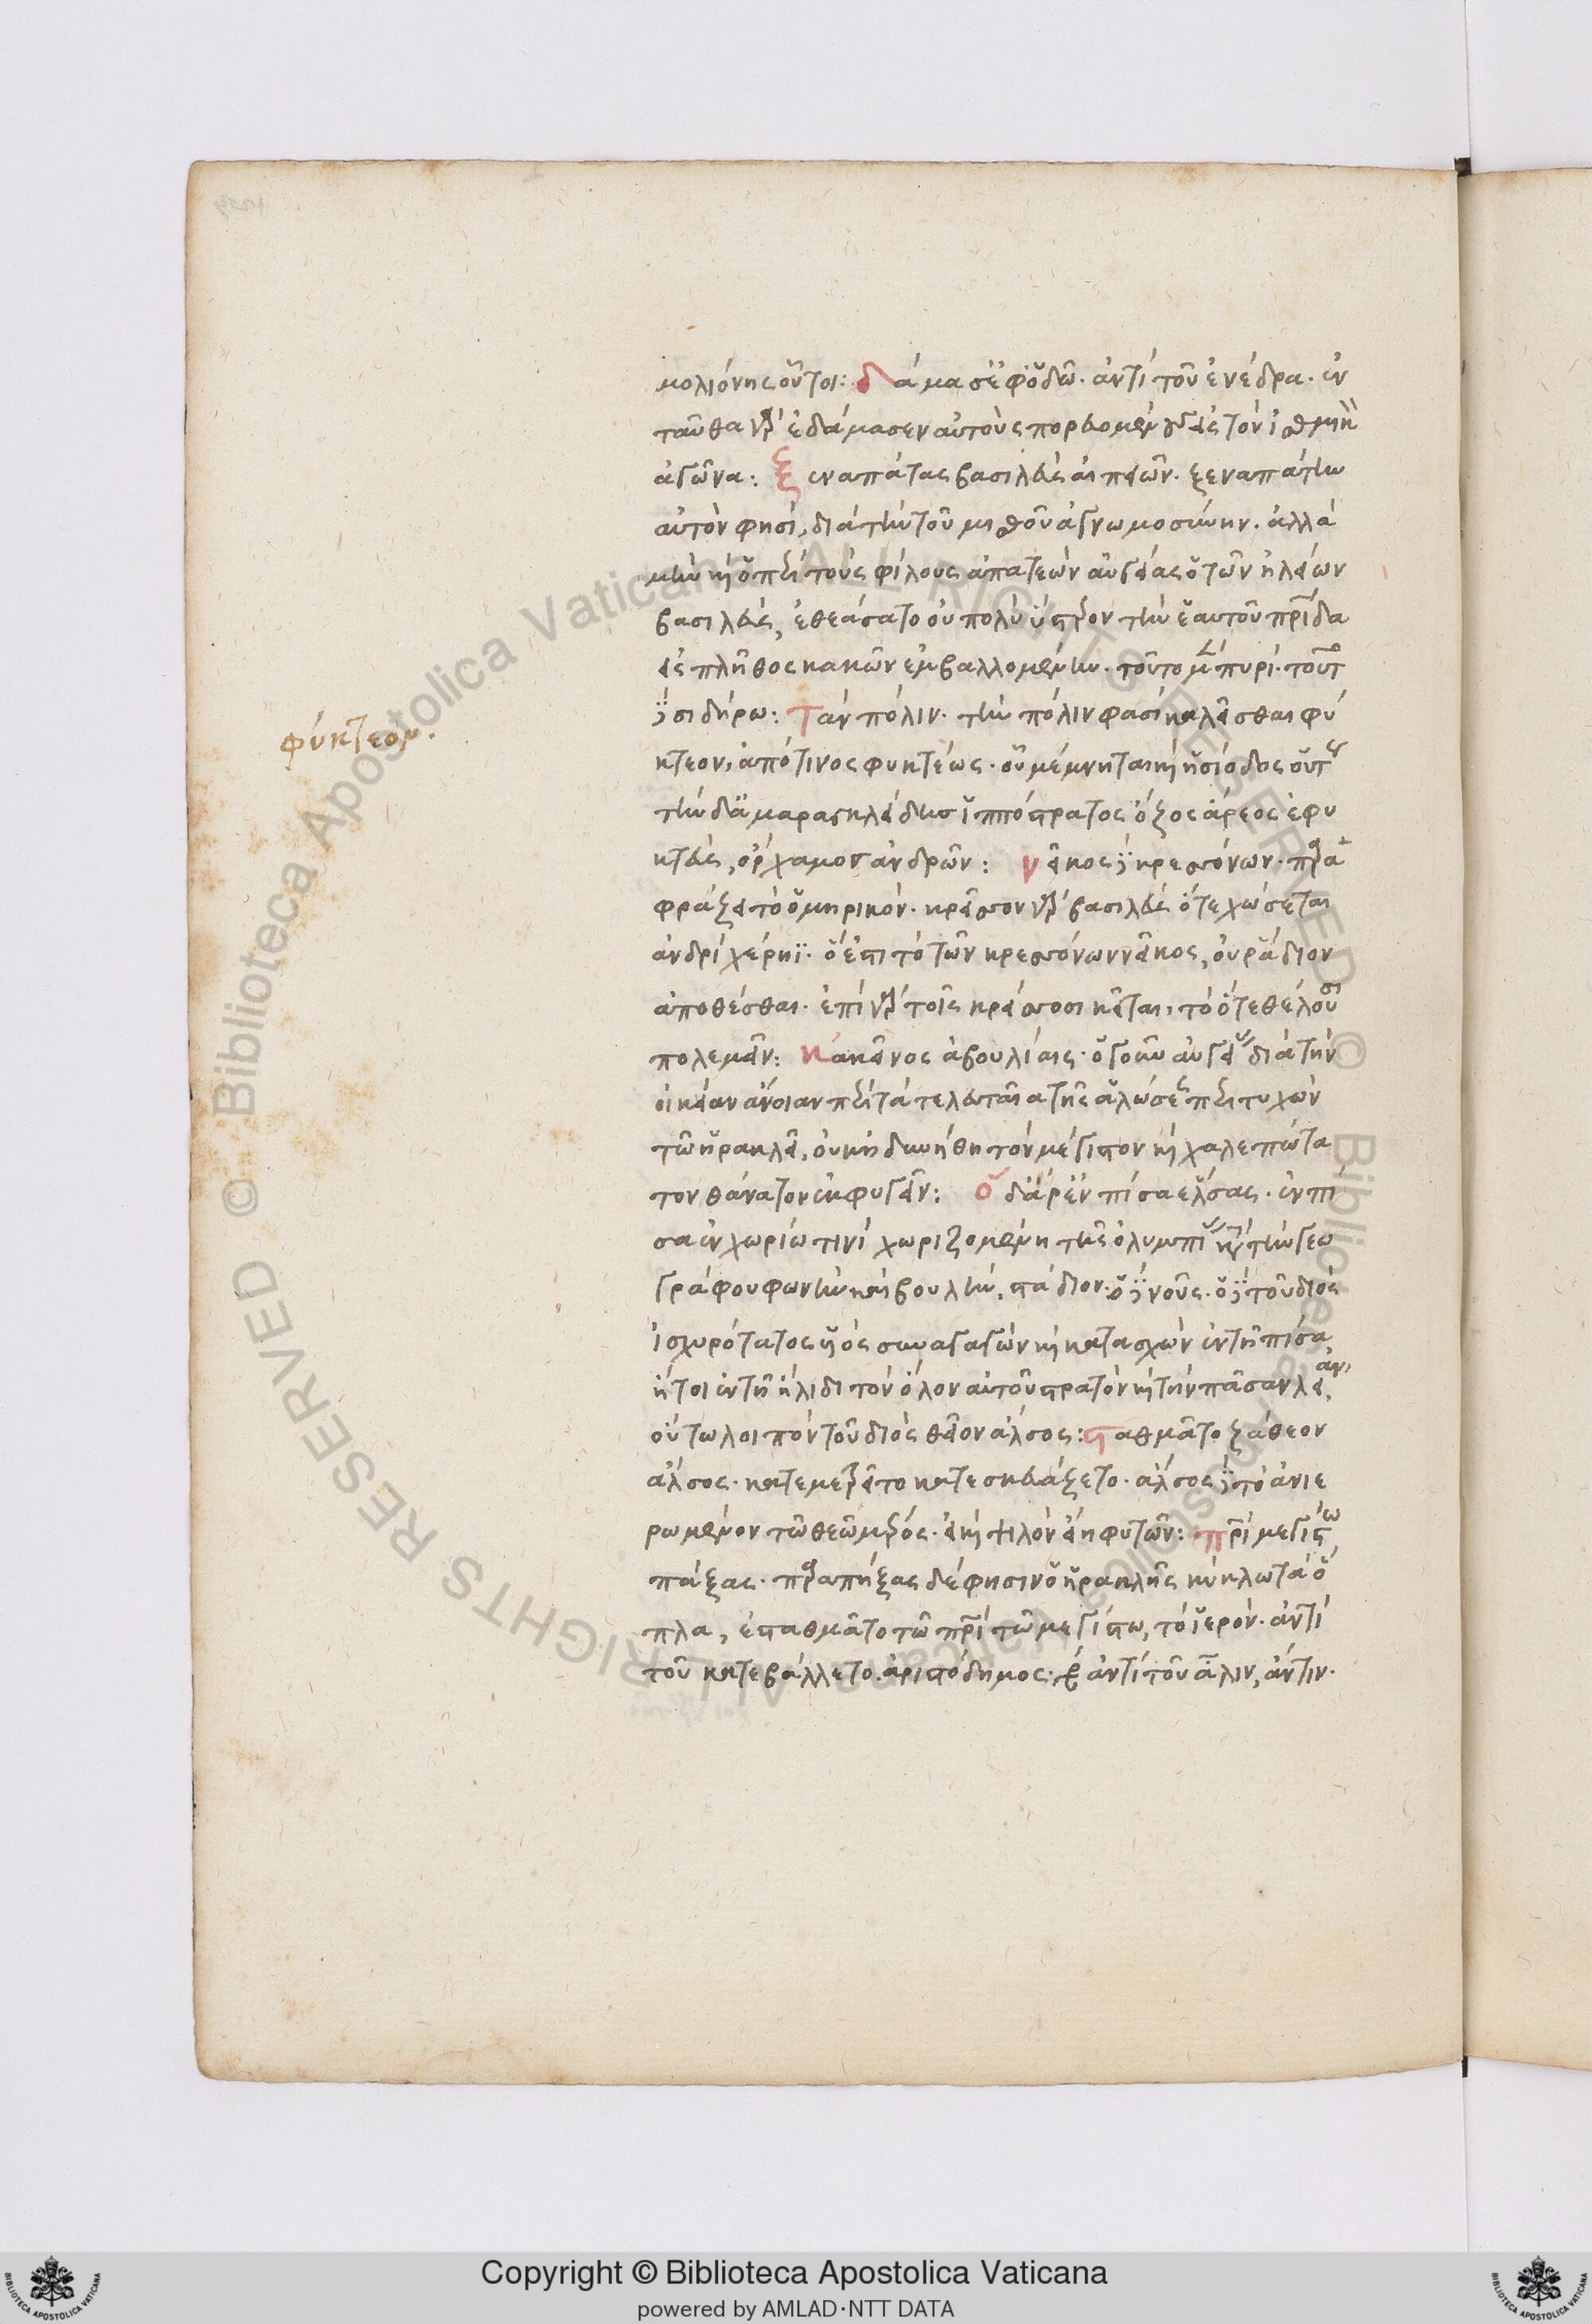 μολιόνης οὗτοι: δάμασε ἐφ' ὁδῶ. ἀντὶ τοῦ ἐνέδρα. ἐν
ταῦθα γὰρ ἐδάμασεν αὐτοὺς πορευομένους εἰς τὸν ἰσθμικὸν
ἀγῶνα: ξεναπάτας βασιλεὺς αἰπειῶν. ξεναπάτην
αὐτὸν φησὶ, διὰ τὴν τοῦ μισθοῦ ἀγνωμοσύνην. ἀλλὰ
μὴν καὶ ὁ περὶ τοὺς φίλους ἀπατεὼν αὐγείας ὁ τῶν ἠλείων
βασιλεὺς, ἐθεάσατο οὐ πολὺ ὕστερον τὴν ἑαυτοῦ πατρίδα
εἰς πλῆθος κακῶν ἐμβαλλομένην. τοῦτο μὲν πυρὶ. τοῦτο
δὲ σιδήρω: Τὰν πόλιν. τὴν πόλιν φασὶ καλεῖσθαι φύ
κτεον, ἀπό τινος φυκτέως. οὗ μέμνηται καὶ ἡσίοδος οὕτως
τὴν δ' ἀμαρυγκείδης ἱππόστρατος ὄζος ἄρεος ἐφυ
κτεὺς, ὄρχαμος ἀνδρῶν: νεῖκος δὲ κρεσσόνων. παρα
φράζει τὸ ὁμηρικόν. κρείσσων γὰρ βασιλεὺς ὅτε χώσεται
ἀνδρὶ χέρηϊ. ὅ ἐστι τὸ τῶν κρεσσόνων νεῖκος, οὐ ῥάδιον
ἀποθέσθαι. ἐπὶ γὰρ τοῖς κρείσσοσι κεῖται, τὸ ὅτε θέλουσι
πολεμεῖν: κἀκεῖνος ἀβουλίαις. ὁ γοῦν αὐγείας διὰ τὴν
οἰκείαν ἄνοιαν περὶ τὰ τελευταῖα τῆς ἁλώσεως περιτυχὼν
τῶ ἡρακλεῖ, οὐκ ἠδυνήθη τὸν μέγιστον καὶ χαλεπώτα
τον θάνατον ἐκφυγεῖν: ὁ δ' ἄρ' ἐν πίσα ἔλσας. ἐν πί
σα ἐν χωρίω τινὶ χωριζομένη τῆς ὀλυμπίας κατὰ τὴν γεω
γράφου φωνὴν καὶ βουλὴν, στάδιον. ὁ δὲ νοῦς. ὁ δὲ τοῦ διὸς
ἰσχυρότατος υἱὸς συναγαγὼν καὶ κατασχὼν ἐν τῆ πίσα
ἤτοι ἐν τῆ ἤλιδι τὸν ὅλον αὐτοῦ στρατὸν καὶ τὴν πᾶσαν λείαν,
οὕτω λοιπὸν τοῦ διὸς θεῖον ἄλσος: σταθμᾶτο ζάθεον
ἄλσος. κατεμετρεῖτο κατεσκευάζετο. ἄλσος δὲ τὸ ἀνιε
ρωμένον τῶ θεῶ μέρος. εἰ καὶ ψιλὸν εἴη φυτῶν: πατρὶ μεγίστω
πάξας. παραπήξας δέ φησιν ὁ ἡρακλῆς κύκλω τὰ ὅ
πλα, ἐσταθμᾶτο τῶ πατρὶ τῶ μεγίστω, τὸ ἱερόν. ἀντὶ
τοῦ κατεβάλλετο. ἀριστόδημος δὲ ἀντὶ τοῦ ἄλιν, ἄντιν.
φύκτεον.
Copyright © Biblioteca Apostolica Vaticana
powered by AMLAD·NTT DATA